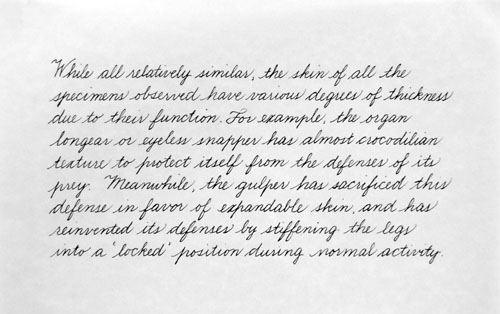 While all relatively similar, the skin of all the
specimens observed have various degrees of thickness
due to their function. For example, the organ
longear or eyeless snapper has almost crocodilian
texture to protect itself from the defenses of its
prey. Meanwhile, the gulper has sacrificed this
defense in favor of expandable skin, and has
reinvented its defenses by stiffening the legs
into a 'locked' position during normal activity.